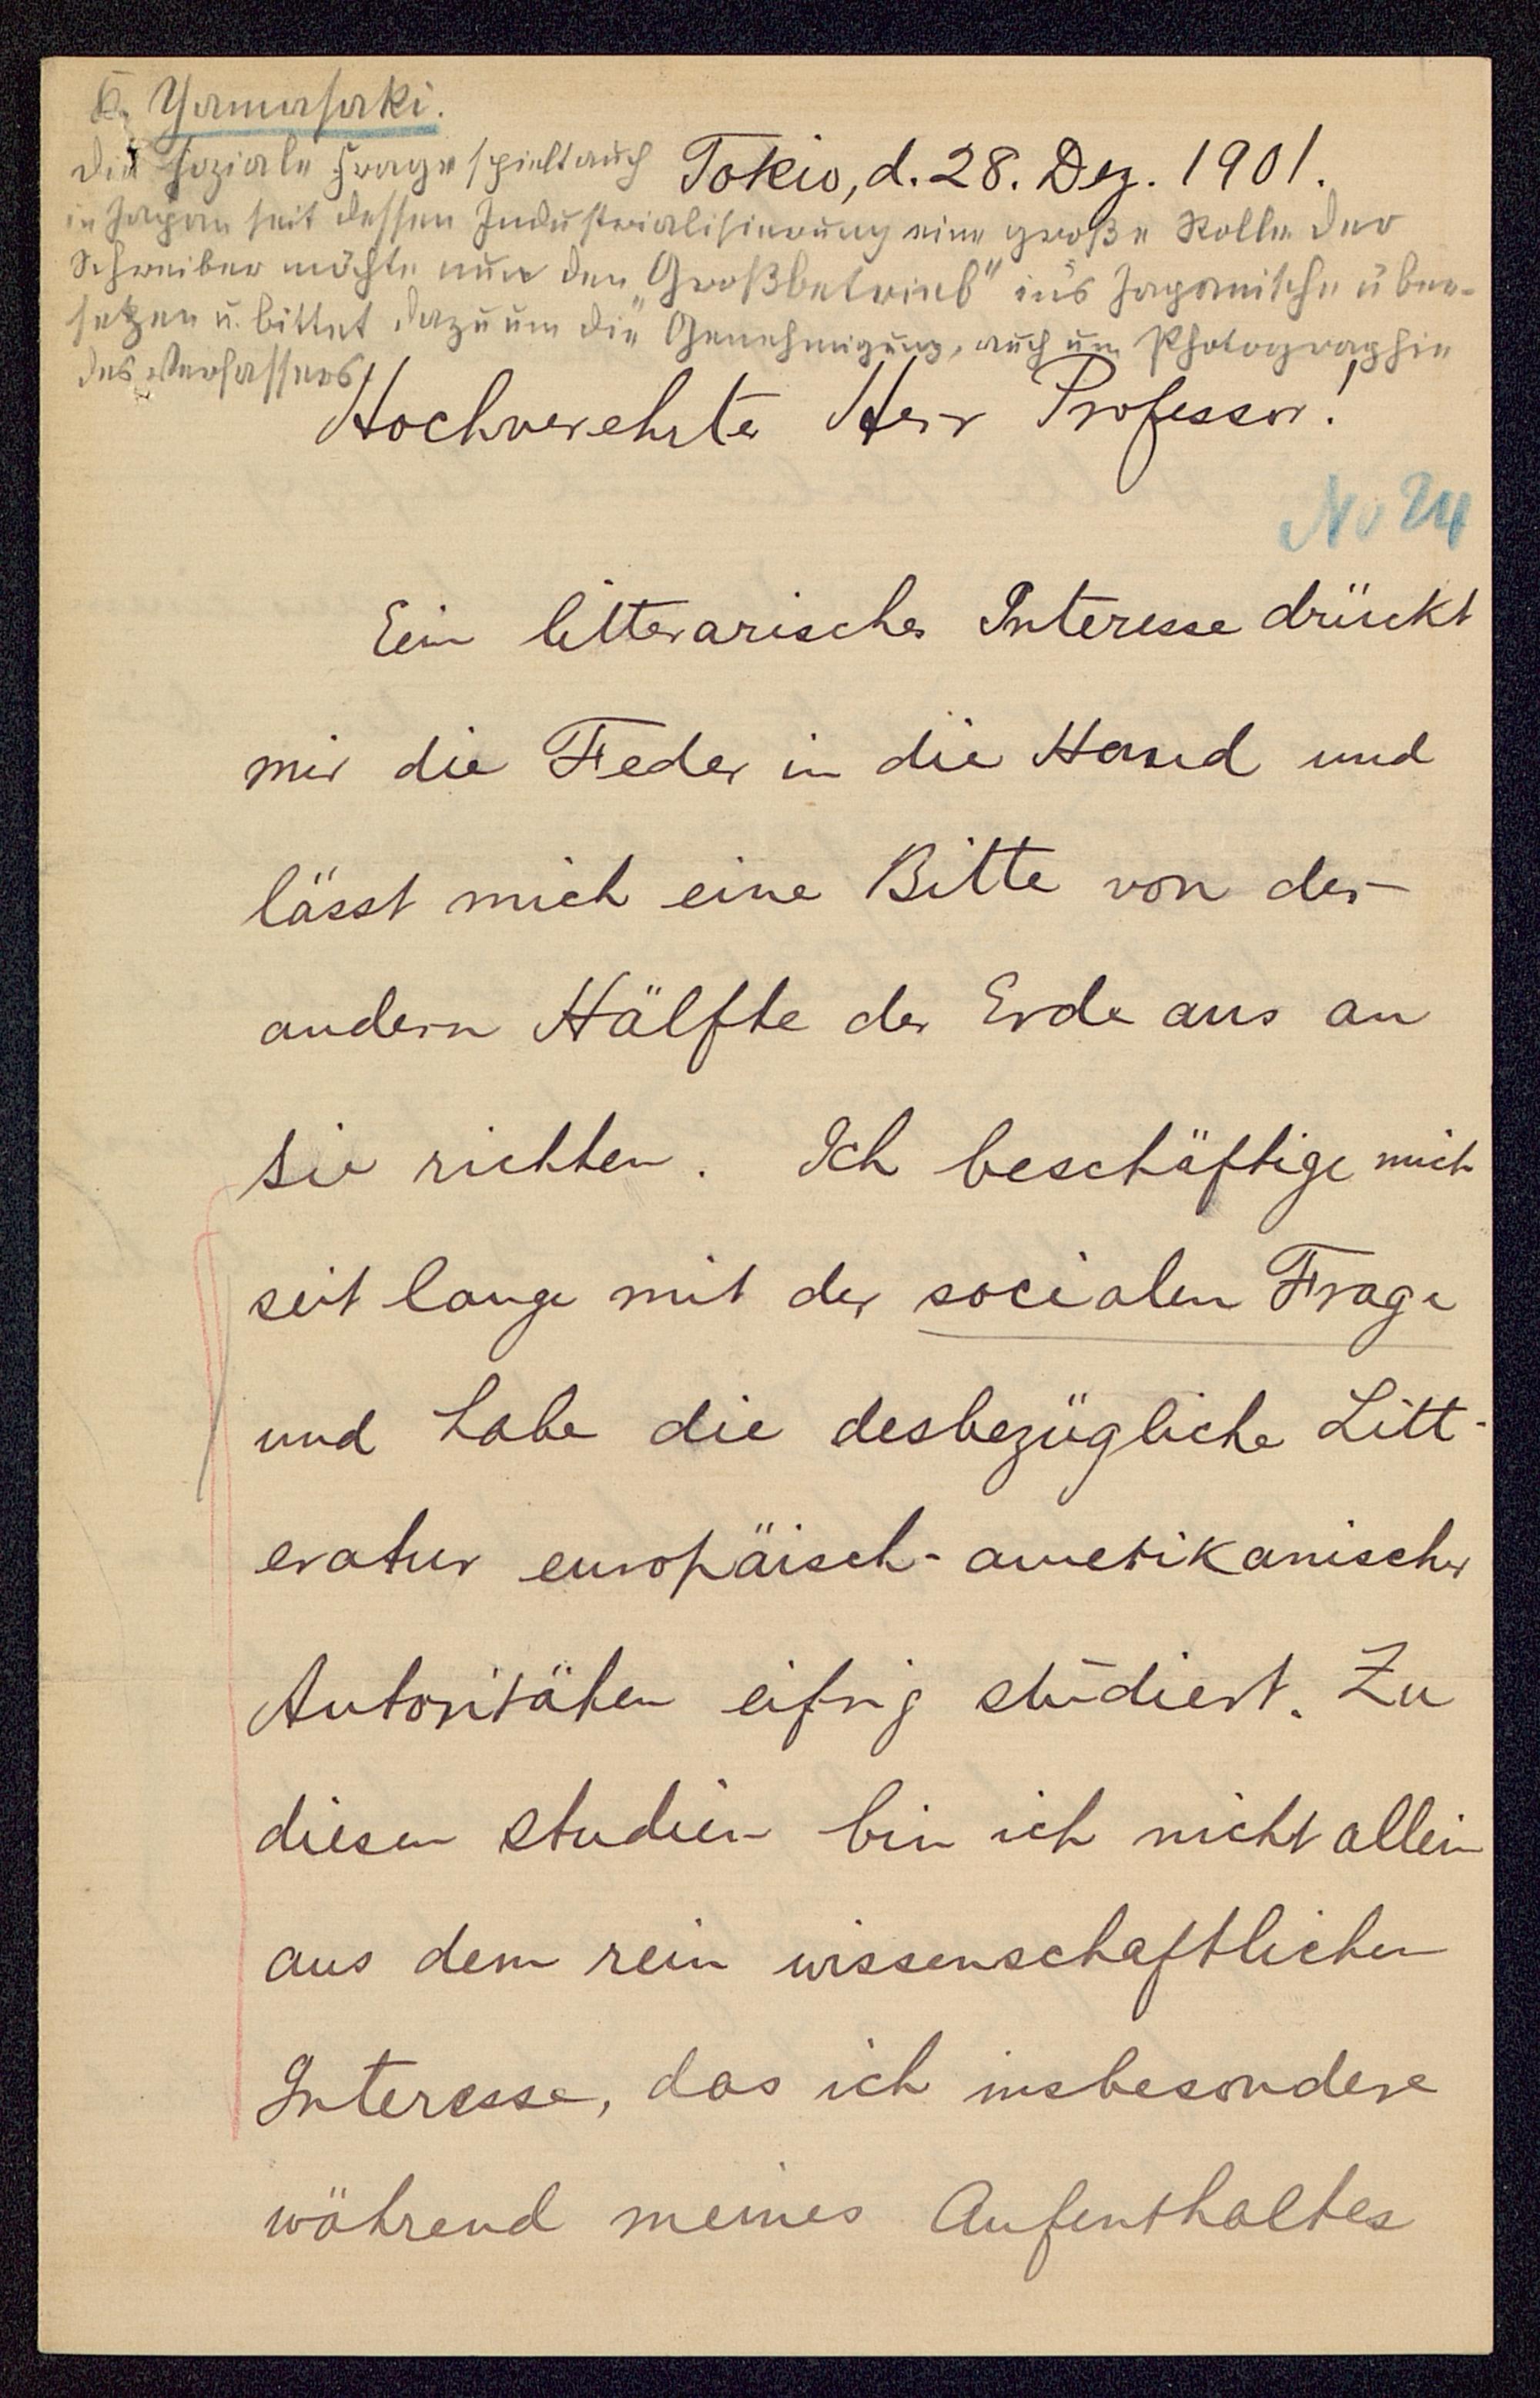 K. Yamasaki.
Die soziale Frage spielt auch
in Japan seit dessen Industrialisierung eine große Rolle. Der
Schreiber möchte nun den „Großbetrieb" ins Japanische über-
setzen u. bittet dazu um die Genehmigung, auch um Photographie
des Verfassers.
Tokio, d. 28. Dez. 1901.
Hochverehrter Herr Professor!
No 24
Ein litterarisches Interesse drückt
mir die Feder in die Hand und
lässt mich eine Bitte von der
andern Hälfte der Erde aus an
Sie richten. Ich beschäftige mich
seit lange mit der socialen Frage
und habe die desbezügliche Litt-
eratur europäisch-amerikanischer
Autoritäten eifrig studiert. Zu
diesen Studien bin ich nicht allein
aus dem rein wissenschaftlichen
Interesse, das ich insbesondere
während meines Aufenthaltes